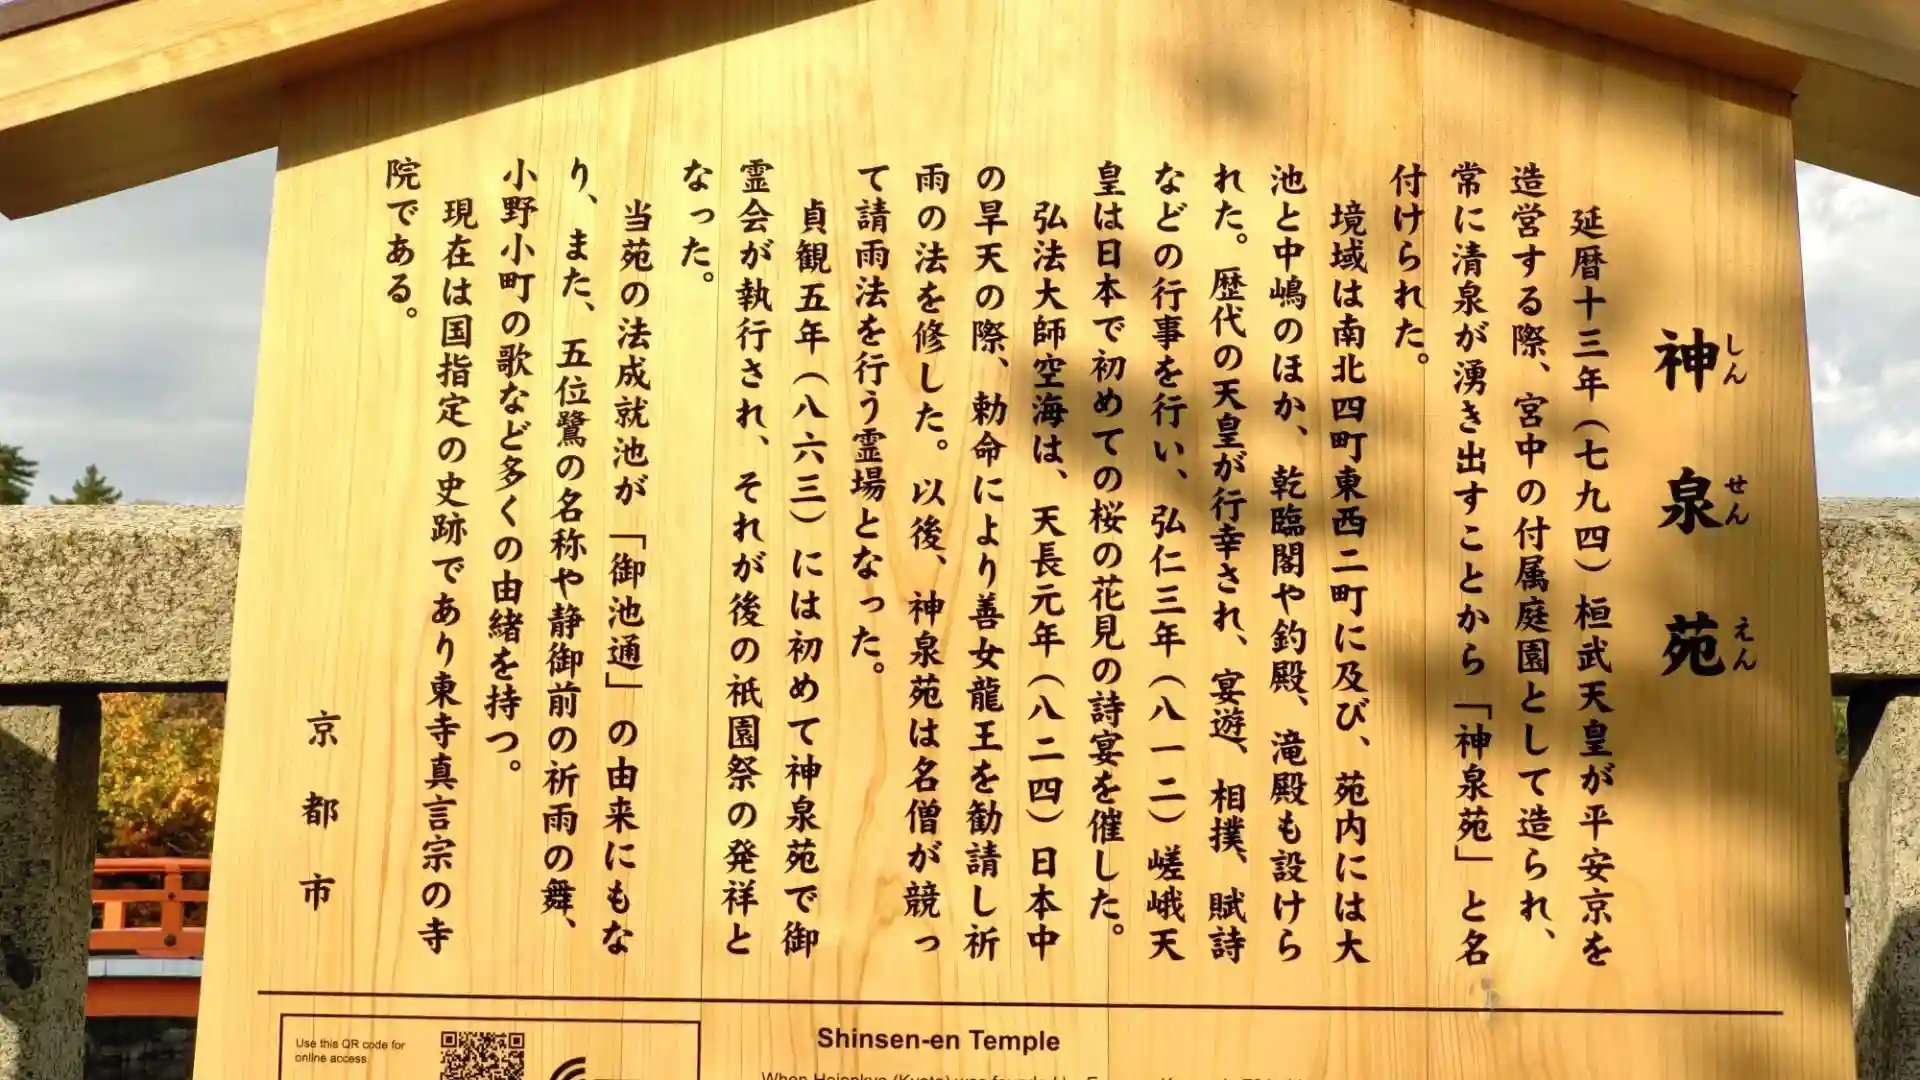 神泉苑
しん せん えん
延暦十三年(七九四)桓武天皇が平安京を
造営する際、宮中の付属庭園として造られ、
常に清泉が湧き出すことから「神泉苑」と名
付けられた。
境域は南北四町東西二町に及び、苑内には大
池と中嶋のほか、乾臨閣や釣殿、滝殿も設けら
れた。歴代の天皇が行幸され、宴遊、相撲、賦詩
などの行事を行い、弘仁三年(八一二)嵯峨天
皇は日本で初めての桜の花見の詩宴を催した。
弘法大師空海は、天長元年(八二四)日本中
の旱天の際、勅命により善女龍王を勧請し祈
雨の法を修した。以後、神泉苑は名僧が競っ
て請雨法を行う霊場となった。
貞観五年(八六三)には初めて神泉苑で御
霊会が執行され、それが後の祇園祭の発祥と
なった。
当苑の法成就池が「御池通」の由来にもな
り、また、五位鷺の名称や静御前の祈雨の舞、
小野小町の歌など多くの由緒を持つ。
現在は国指定の史跡であり東寺真言宗の寺
院である。
京都市
Use this QR code for
online access.
Shinsen-en Temple